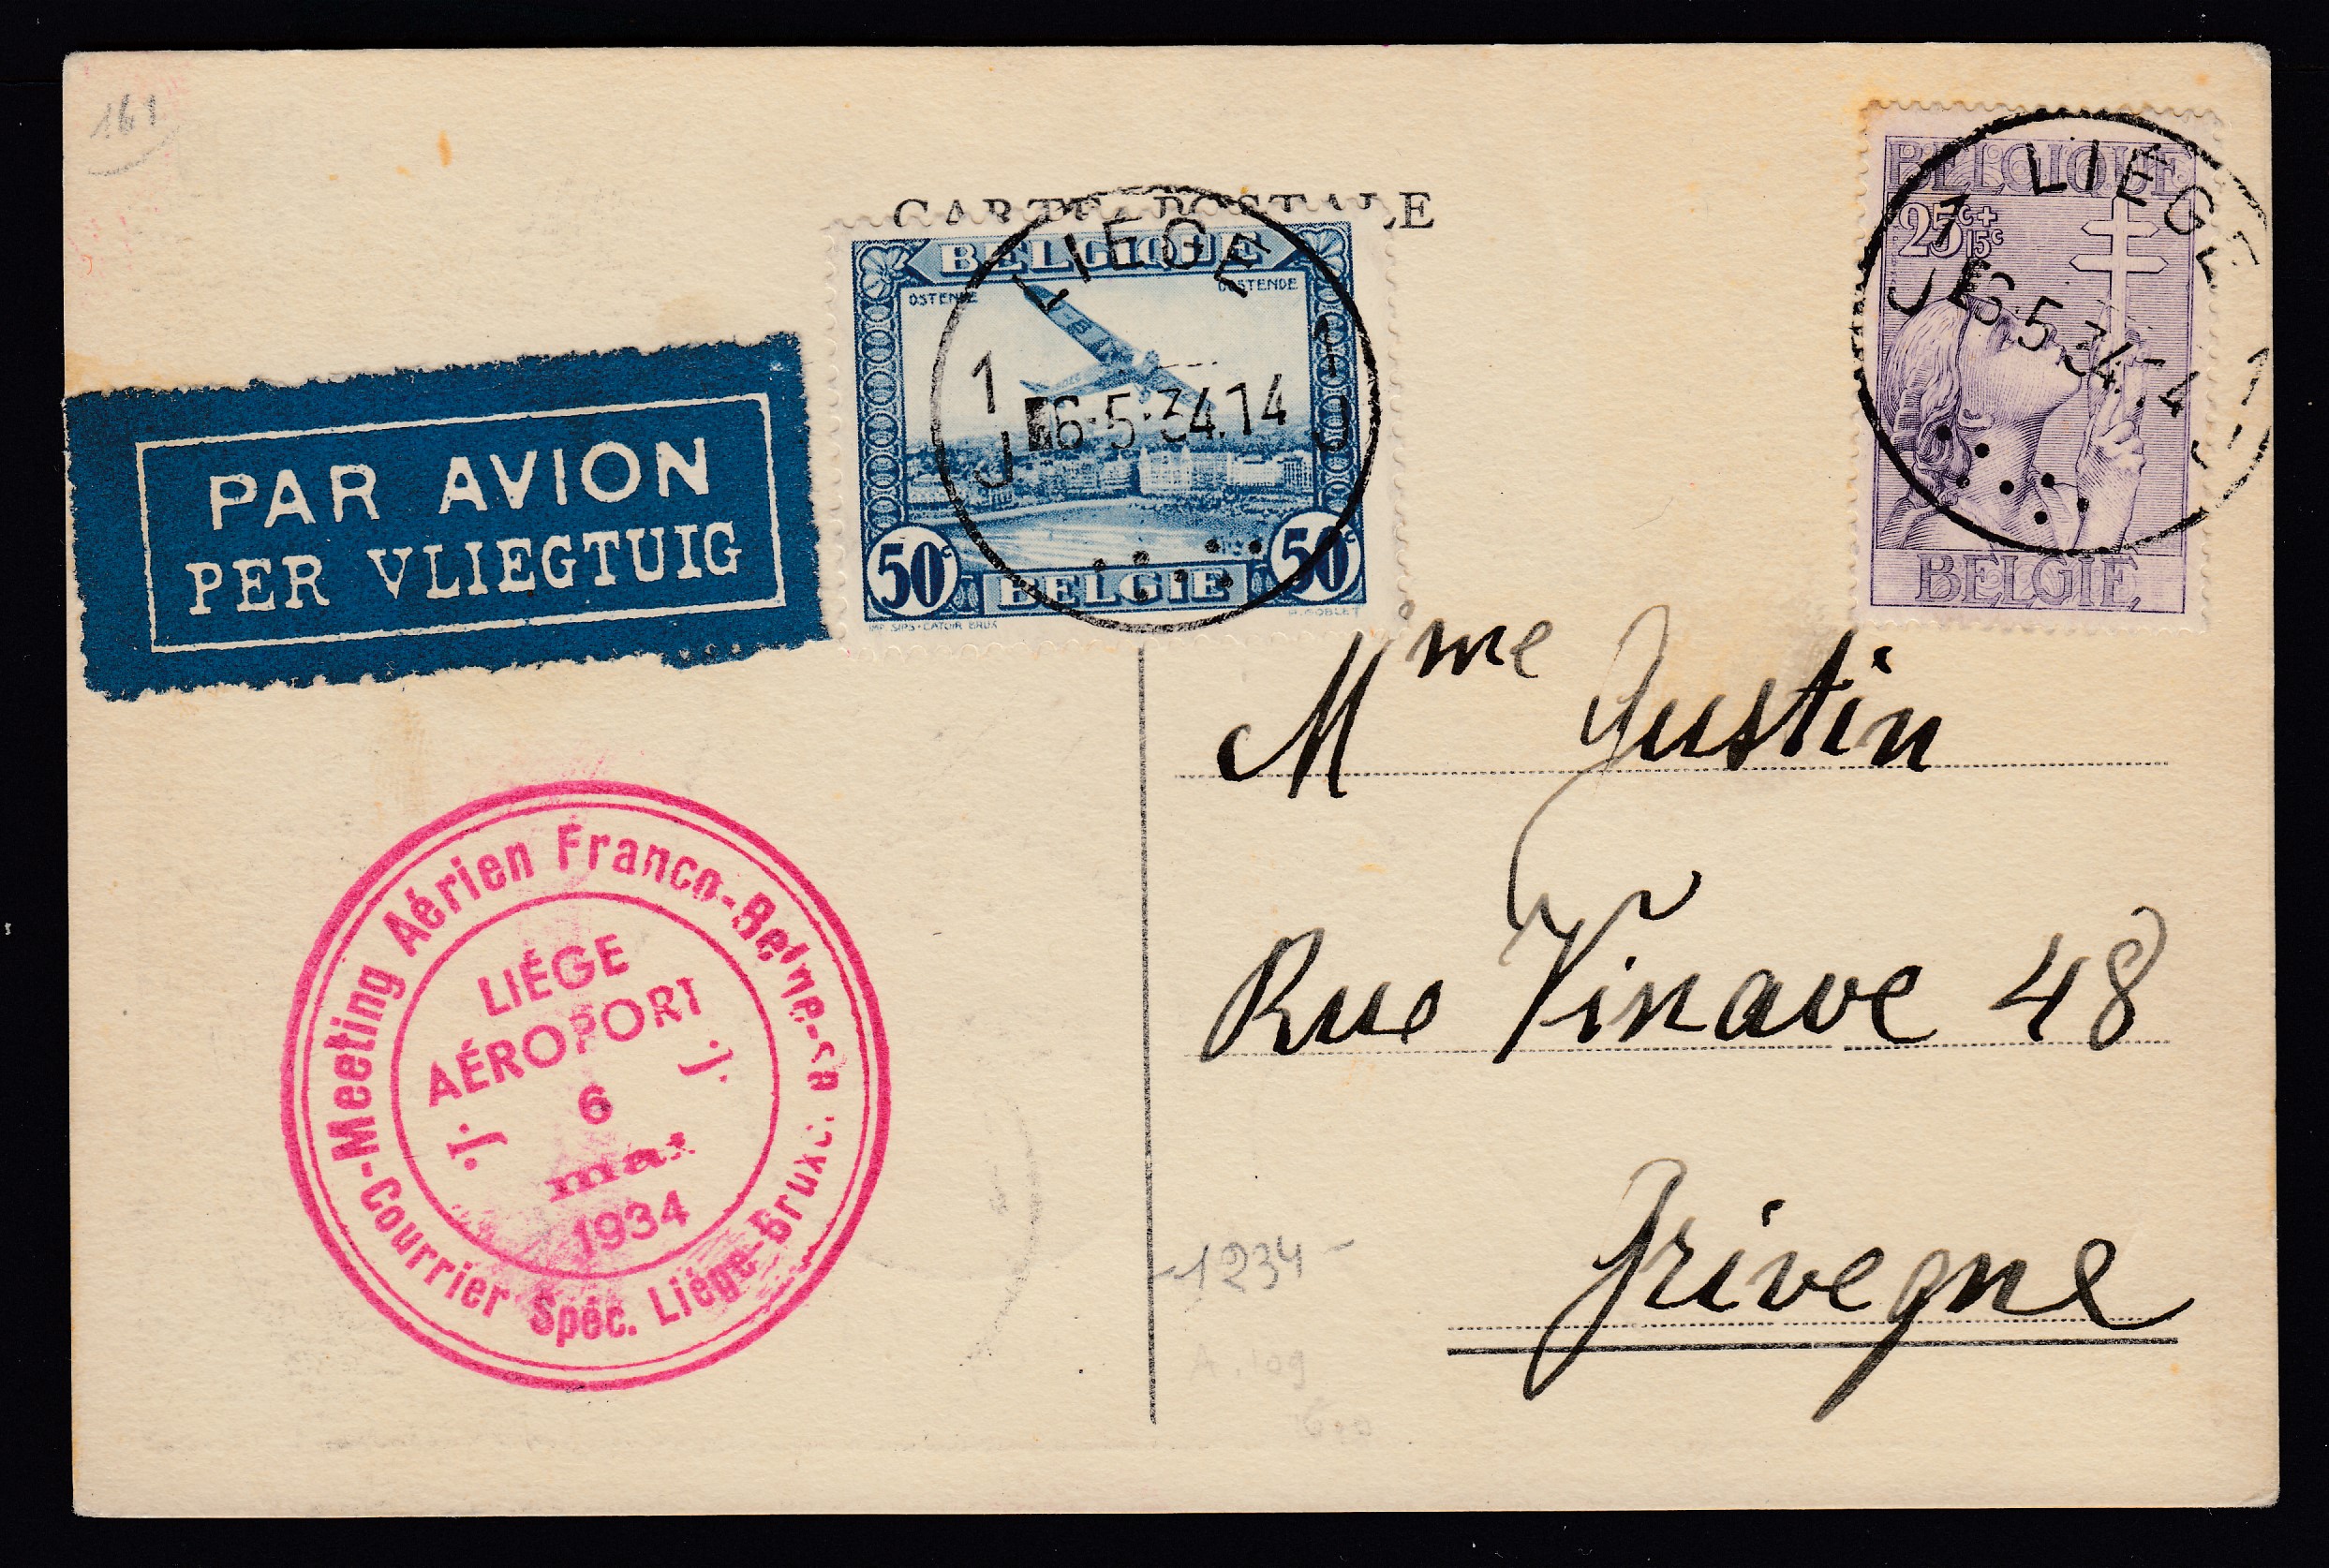 161
CARTE POSTALE
BELGIQUE
OSTENDE OOSTENDE
50c 50c
BELGIE
IMP. SIPS-CATOIR BRUX
LIEGE
1 1
6·5·34.14
J J
BELGIQUE
25c+15c
BELGIE
1 LIEGE 1
J 6·5·34
PAR AVION
PER VLIEGTUIG
Mme Justin
Rue Vinave 48
Grivegne
-Meeting Aérien Franco-Belge-
-Courrier Spéc. Liége-
LIÉGE
AÉROPORT
J. J.
6
mai
1934
-1234-
A. 109